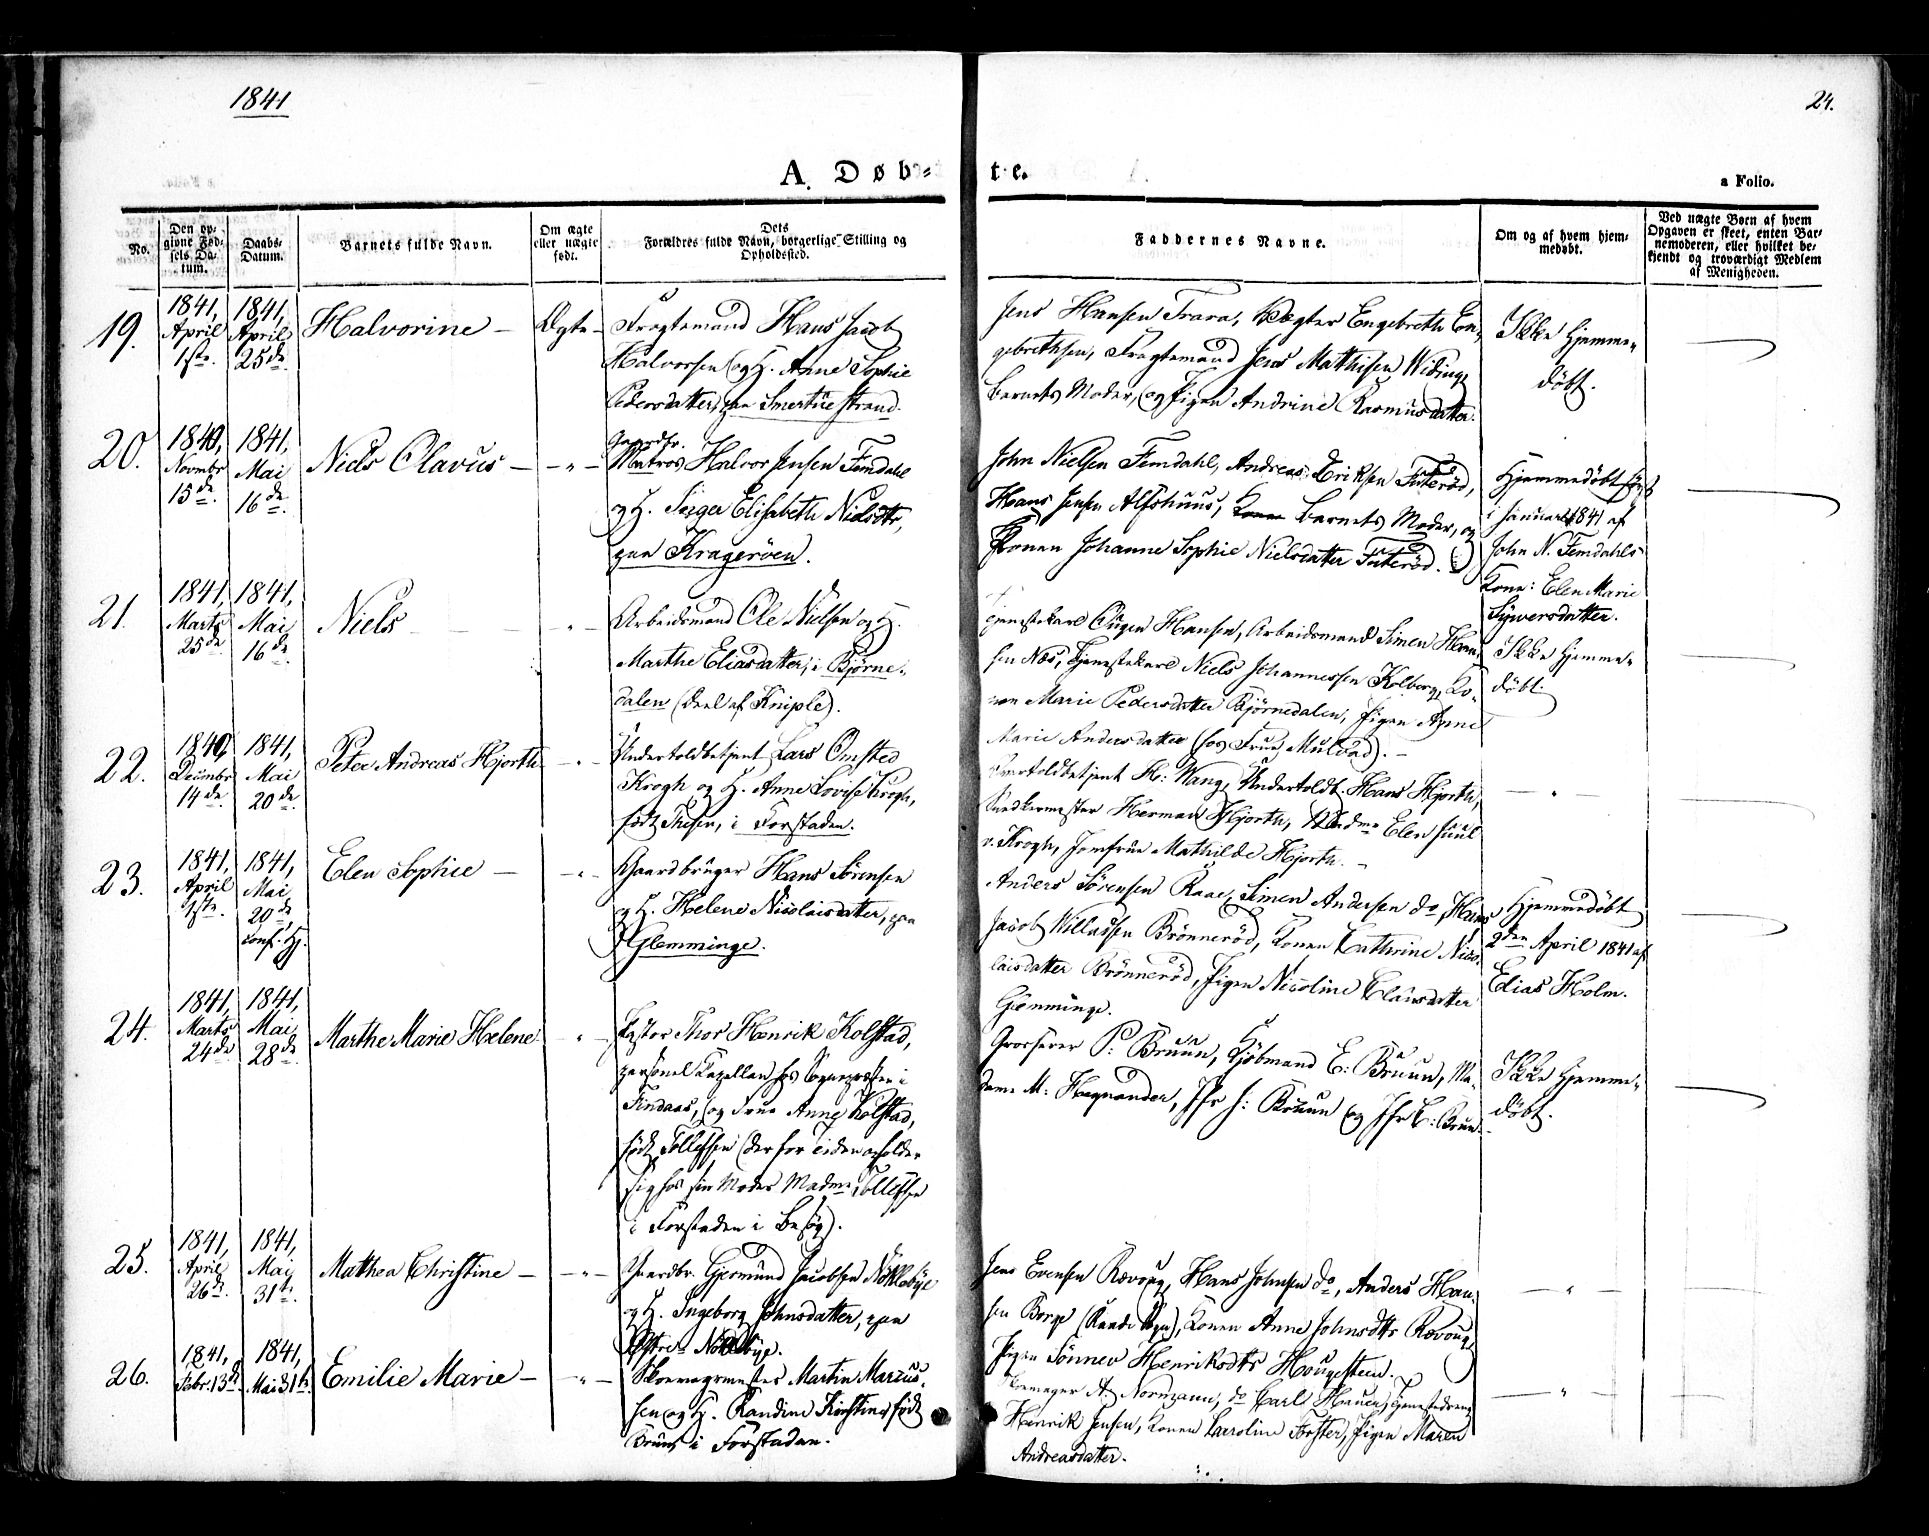 1841
24.
A. Døb-
te.
a Folio.
No.
Den op-
givne Fød-
sels Da-
tum.
Daabs-
Datum.
Barnets fulde Navn.
Om ægte
eller uægte
født.
Dets
Forældres fulde Navn, borgerlige Stilling og
Opholdssted.
Faddernes Navne.
Om og af hvem hjem-
medøbt.
Ved uægte Børn af hvem
Opgaven er skeet, enten Bar-
nemoderen, eller hvilket be-
kjendt og troværdigt Medlem
af Menigheden.
19.
1841,
April
1ste.
1841,
April
25de.
Halvorine –
Ægte –
Fragtemand Hans Jacob
Halvorsen og H. Anne Sophie
Pedersdatter, paa Smertuestrand.
Jens Hansen Trara, Vægter Engebreth En-
gebrethsen, Fragtemand Jens Mathisen Widing,
Barnets Moder, og Pigen Andrine Rasmusdatter.
Ikke hjemme-
døbt.
20.
1840,
Novmbr
15de.
1841,
Mai
16de.
Niels Olavus –
– " –
Gaardbr.
Matros Halvor Jensen Femdahl
og H. Inger Elisabeth Nielsdtr,
paa Kragerøen.
John Nielsen Femdahl, Andreas Eriksen Futerød,
Hans Jensen Alfshuus, Kone Barnets Moder, og
Konen Johanne Sophie Nielsdatter Futerød.
Hjemmedøbt først
i Januar 1841 af
John N. Femdahls
Kone: Elen Marie
Syversdatter.
21.
1841,
Marts
25de
1841,
Mai
16de.
Niels
" –
Arbeidsmand Ole Nielsen og H.
Marthe Eliasdatter, i Bjørne-
dalen (Deel af Kniple).
Tjenestekarl Eugen Hansen, Arbeidsmand Simen Han-
sen Næs, Tjenestekarl Niels Johannessen Kolberg, Ko-
nen Marie Pedersdatter Bjørnedalen, Pigen Anne
Marie Andersdatter (hos Frue Mulvad). –
Ikke hjemme-
døbt.
22.
1840,
Decmbr
14de
1841,
Mai
20de
Peter Andreas Hjorth
– " –
Undertoldbetjent Lars Omsted
Krogh og H. Anne Lovise Krogh,
født Thesen, i Forstaden.
Overtoldbetjent H: Wang, Undertoldb. Hans Hjorth,
Snedkermester Herman Hjorth, Madme Elen Juul
v. Krogh, Jomfrue Mathilde Hjorth. –
– " –
23.
1841,
April
1ste.
1841,
Mai
20de
Conf. Hj.
Elen Sophie –
– " –
Gaardbruger Hans Sørensen
og H. Helene Nicolaisdatter, paa
Glemminge.
Anders Sørensen Raae, Simen Andersen do, Hans
Jacob Willussen Brønnerød, Konen Cathrine Nico-
laisdatter Brønnerød, Pigen Nicoline Clausdatter
Glemminge.
Hjemmedøbt
2den April 1841 af
Elias Holm.
24.
1841,
Marts
24de
1841,
Mai
28de
Marthe Marie Helene
– " –
Pastor Thor Henrik Kolstad,
personel Kapellan hos Sognepræsten i
Findaas, og Frue Anne Kolstad,
født Tollefsen (der for Tiden opholder
sig hos sin Moder Madme Tollefsen
i Forstaden i Besøg).
Grosserer P: Bruun, Kjøbmand E: Bruun, Ma-
dame M: Hegnander, Jfr J: Bruun og Jfr C: Bruun.
Ikke hjemme-
døbt.
25.
1841,
April
26de.
1841,
Mai
31te.
Mathea Christine –
– " –
Gaardbr. Gjermund Jacobsen Nøkkebye
og H. Ingeborg Johnsdatter, paa
Østre Nøkkebye.
Jens Evensen Rævoug, Hans Johnsen do, Anders Han-
sen Borge (Raade Sogn), Konen Anne Johnsdtr Rævoug,
Pigen Sønnev Henriksdtr Hougesteen.
– " –
26.
1841,
Febr. 13de
1841,
Mai 31te.
Emilie Marie –
– " –
Skomagermester Martin Marcus-
sen og H. Randine Kirstine født
Brun, i Forstaden.
Skomager A: Normann, do Carl Hauer, Tjenestedreng
Henrik Jensen, Konen Caroline Forster, Pigen Maren
Andreasdatter.
– " –